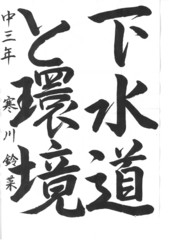 下水道
と環境
中三年 寒川鈴菜